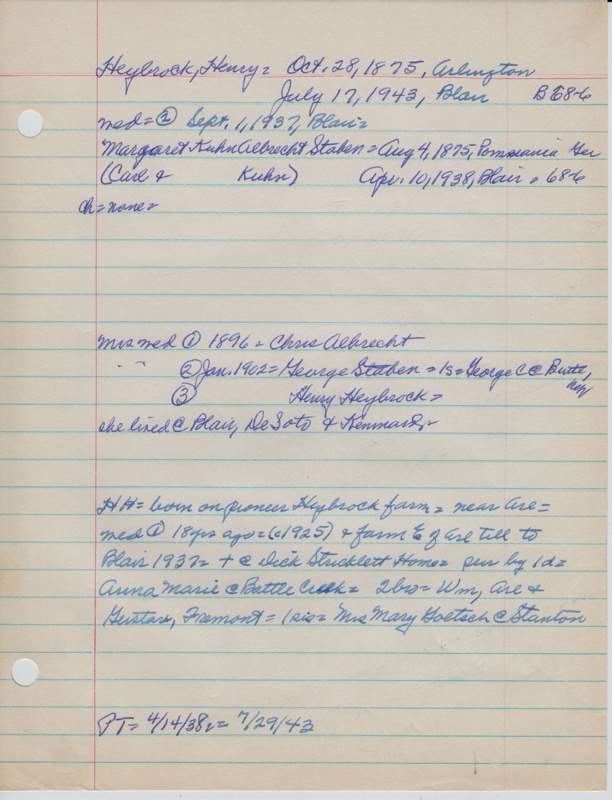 Heybrock, Henry = Oct. 28, 1875, Arlington
July 17, 1943, Blair B 68-6
med = ② Sept. 1, 1937, Blair =
Margaret Kuhn Albrecht Staben = Aug 4, 1875, Pomerania Ger
(Carl & Kuhn) Apr. 10, 1938, Blair = 68-6
ch = none =
Mrs med ① 1896 = Chris Albrecht
" " ② Jan. 1902 = George Staben = 1s = George C @ Butte, Neb
③ Henry Heybrock =
she lived @ Blair, De Soto & Kennard =
HH = born on pioneer Heybrock farm = near Are =
med ① 18 yrs ago = (c 1925) & farm E of Are till to
Blair 1937 = + @ Dick Stricklett Home = sur by 1 d =
Anna Marie @ Battle Creek = 2 bro = Wm, Are &
Gustav, Fremont = 1 sis = Mrs Mary Goetsch @ Stanton
PT = 4/14/38 = 7/29/43